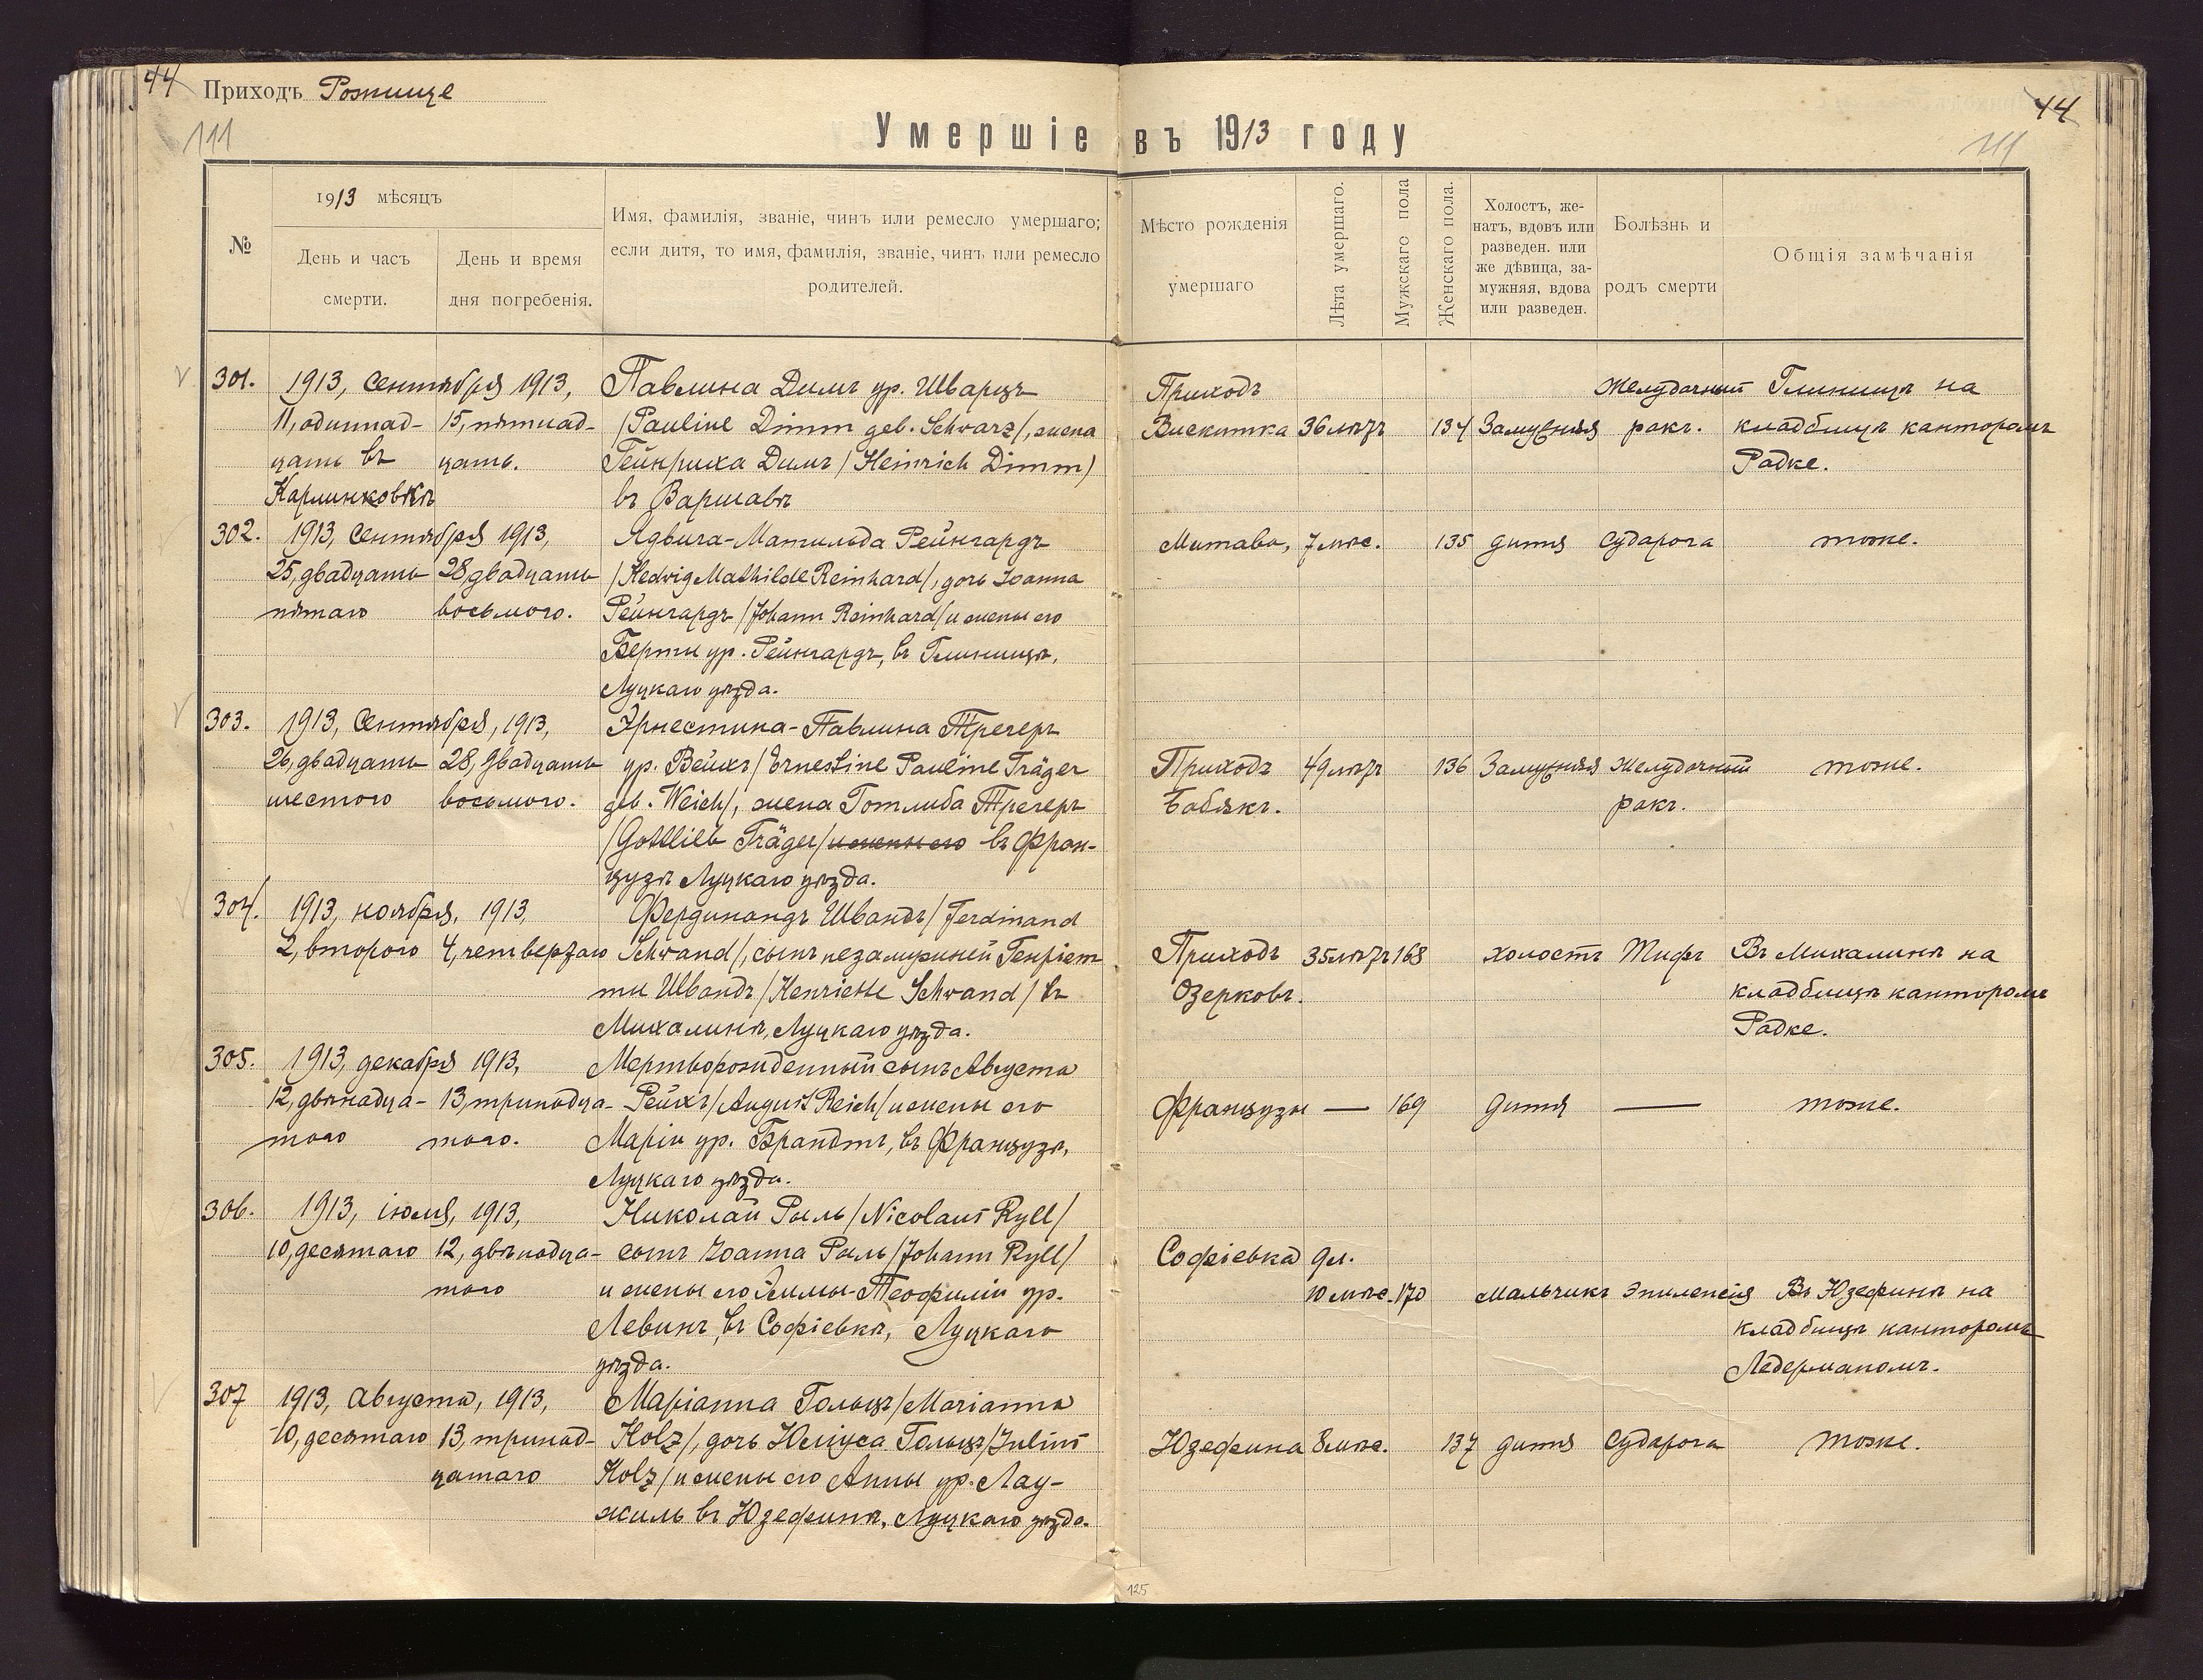 44 Приходъ Рожище
111
44
111
Умершіе въ 1913 году
№
1913 мѣсяцъ
День и часъ
смерти.
День и время
дня погребенія.
Имя, фамилія, званіе, чинъ или ремесло умершаго;
если дитя, то имя, фамилія, званіе, чинъ или ремесло
родителей.
Мѣсто рожденія
умершаго
Лѣта умершаго.
Мужскаго пола
Женскаго пола.
Холостъ, же-
натъ, вдовъ или
разведен. или
же дѣвица, за-
мужняя, вдова
или разведен.
Болѣзнь и
родъ смерти
Общія замѣчанія
301. 1913, Сентября 1913, Павлина Димъ ур. Шварцъ Приходъ Желудочный Глинищѣ на
11, одиннад- 15, пятнад- /Pauline Dimm geb. Schwarz/, жена Вискитка 36 лѣтъ 134 Замужняя ракъ. кладбищѣ канторомъ
цать въ цать. Гейнриха Димъ /Heinrich Dimm/ Радке.
Карлинковкѣ въ Варшавѣ
302. 1913, Сентября 1913, Ядвига-Матильда Рейнгардъ Митава, 7 мѣс. 135 дитя Судорога тоже.
25, двадцать 28, двадцать /Hedwig Mathilde Reinhard/, дочь Іоанна
пятаго восьмого. Рейнгардъ /Johann Reinhard/ и жены его
Берты ур. Рейнгардъ, въ Глинищѣ,
Луцкаго уѣзда.
303. 1913, Сентября, 1913, Эрнестина-Павлина Трегеръ
26, двадцать 28, двадцать ур. Вейхъ /Ernestine Pauline Träger Приходъ 49 лѣтъ 136 Замужняя Желудочный тоже.
шестого восьмого. geb. Weich/, жена Готлиба Трегеръ Бабякъ. ракъ.
/Gottlieb Träger/ и жены его въ Фран-
цузѣ Луцкаго уѣзда.
304. 1913, ноября, 1913, Фердинандъ Швандъ /Ferdinand
2, второго 4, четвертаго Schwand/, сынъ незамужней Генріет- Приходъ 35 лѣтъ 168 холостъ Тифъ Въ Михалинѣ на
ты Швандъ /Henriette Schwand/ въ Озерковъ. кладбищѣ канторомъ
Михалинѣ, Луцкаго уѣзда. Радке.
305. 1913, декабря 1913, Мертворожденный сынъ Августа
12, двѣнадца- 13, тринадца- Рейхъ /August Reich/ и жены его Французы — 169 дитя — тоже.
таго таго. Маріи ур. Брандтъ, въ Французѣ,
Луцкаго уѣзда.
306. 1913, іюля, 1913, Николай Рыль /Nicolaus Ryll/
10, десятаго 12, двѣнадца- сынъ Іоанна Рыль /Johann Ryll/ Софіевка 9 л.
таго и жены его Эммы-Теофиліи ур. 10 мѣс. 170 мальчикъ Эпилепсія Въ Юзефинѣ на
Левинъ, въ Софіевкѣ, Луцкаго кладбищѣ канторомъ
уѣзда. Ледерманомъ.
307 1913, Августа, 1913, Маріанна Гольцъ /Marianna
10, десятаго 13, тринад- Holz/, дочь Юліуса Гольцъ /Julius Юзефина 8 мѣс. 137 дитя Судорога тоже.
цатаго Holz/ и жены его Анны ур. Лау-
жиль въ Юзефинѣ, Луцкаго уѣзда.
125